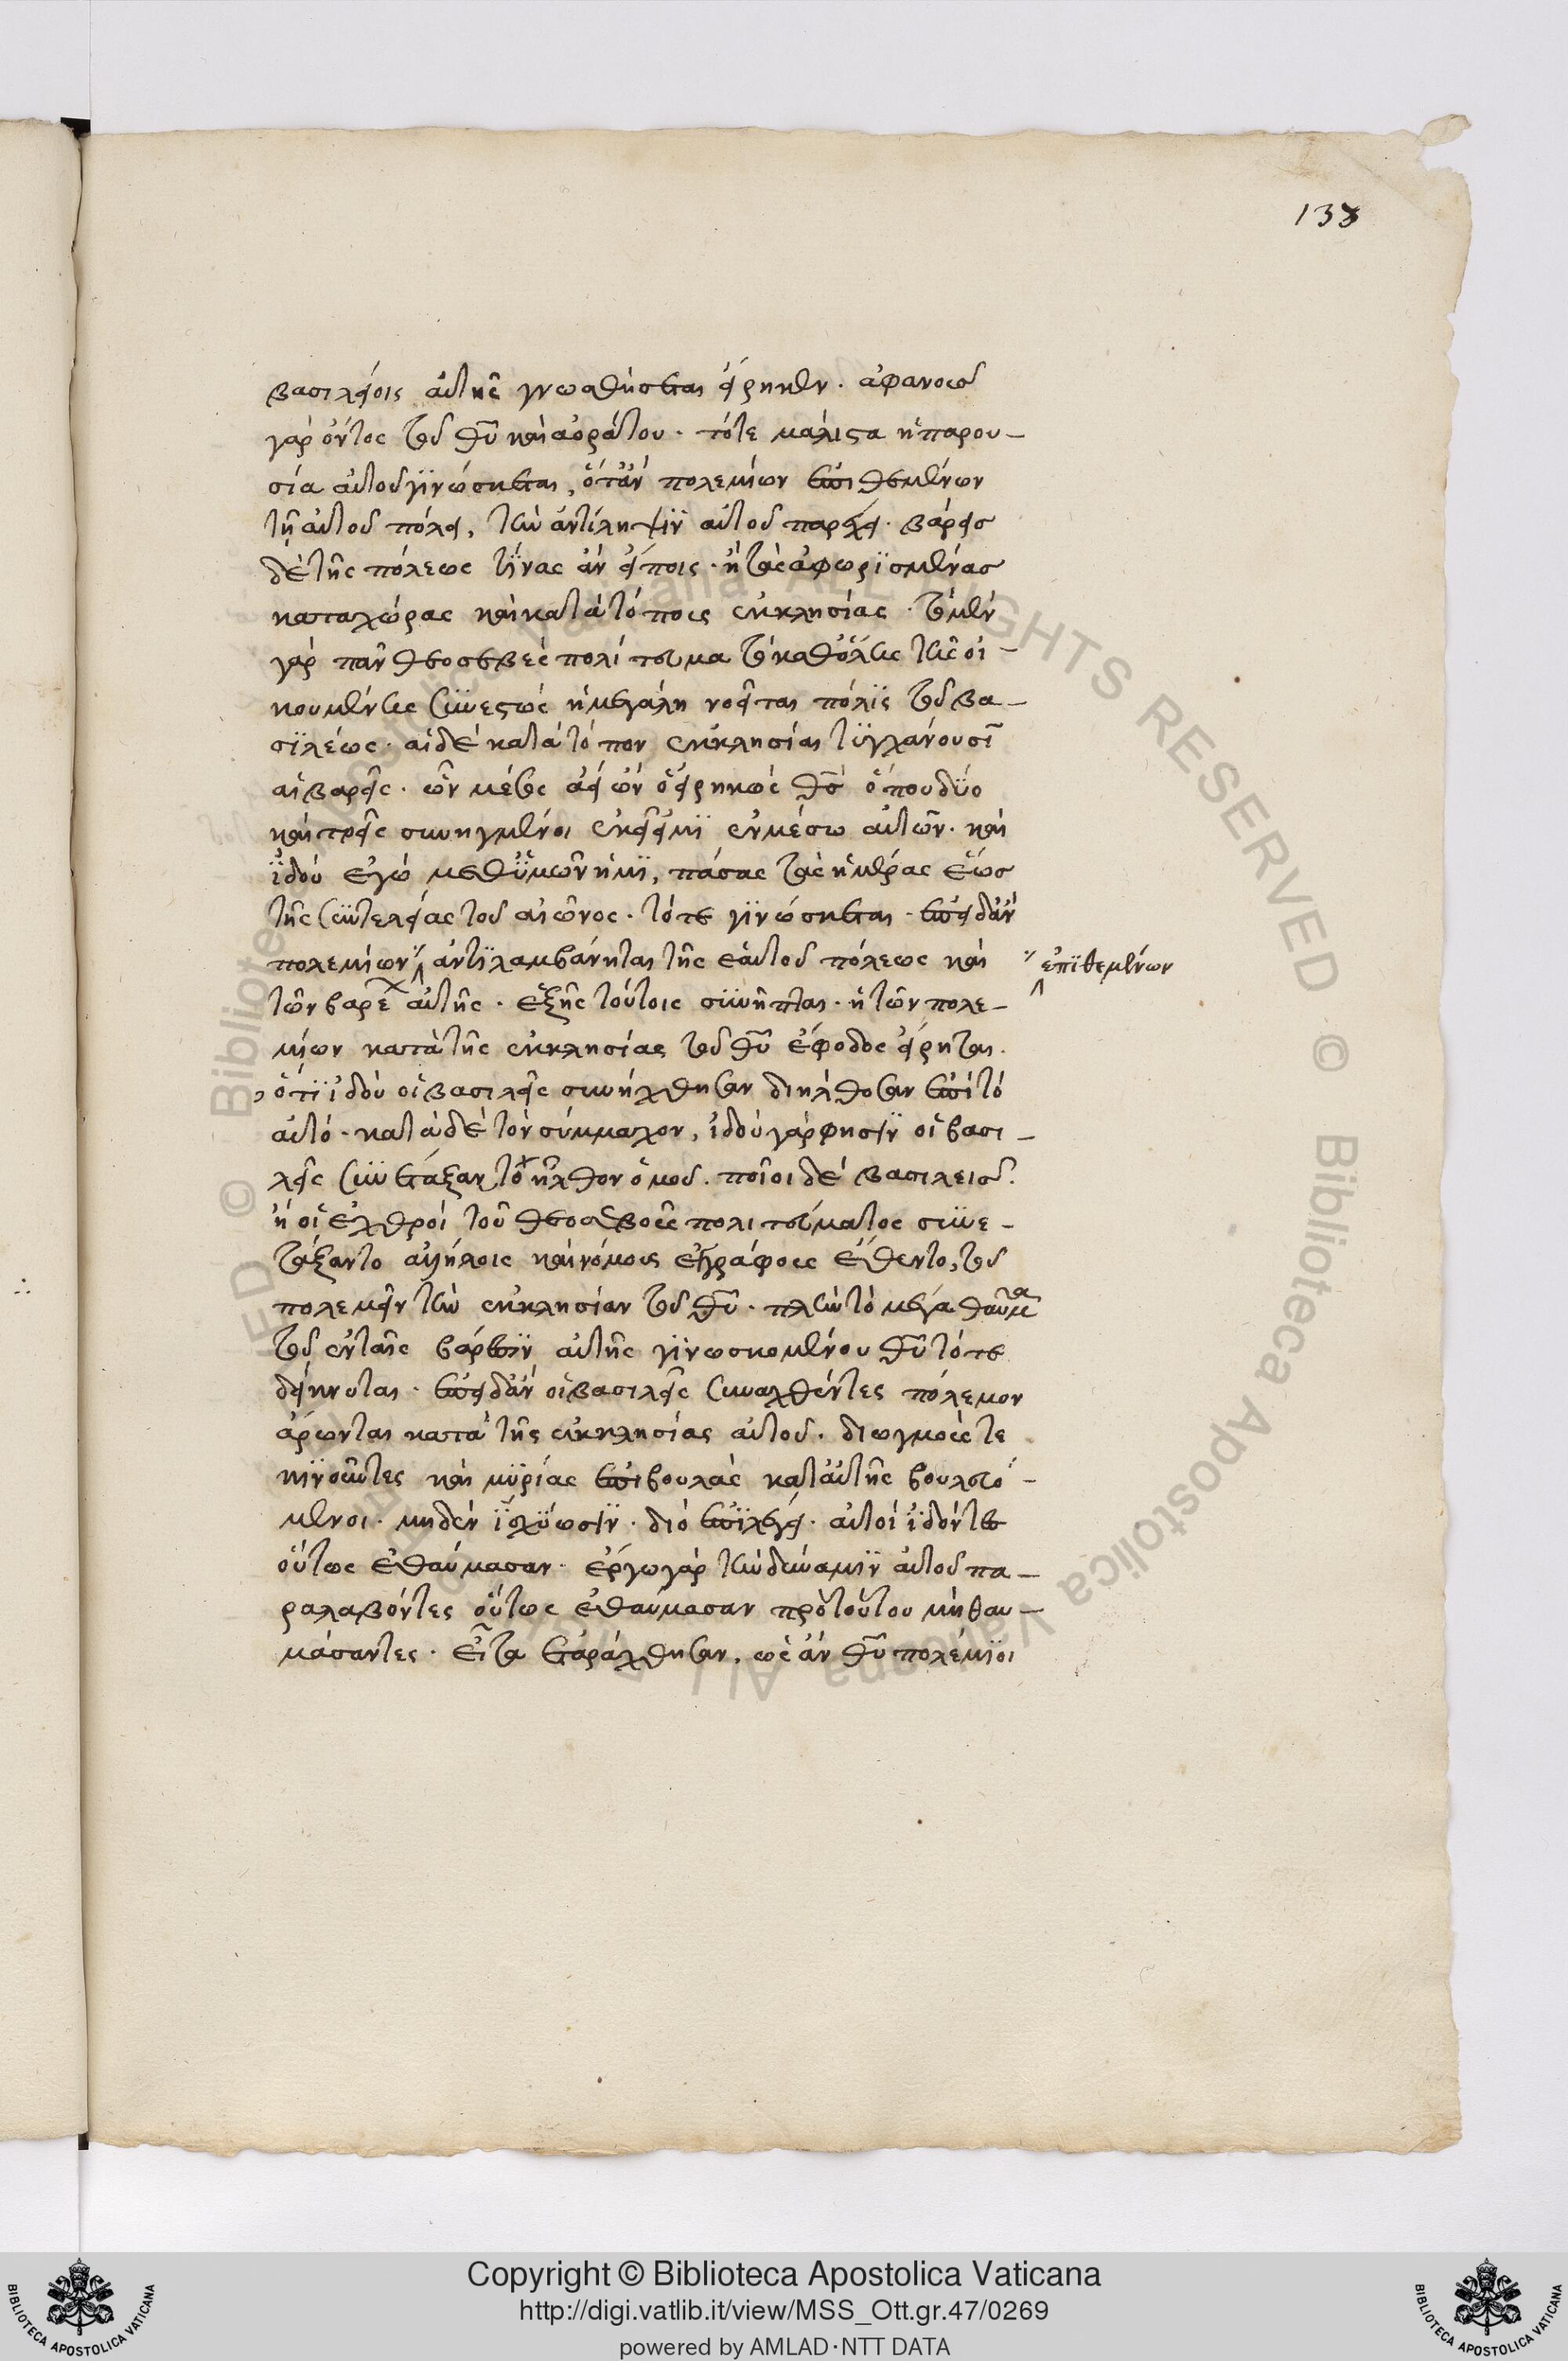 138
βασιλείοις αὐτῆς γνωσθήσεται εἴρηκεν. ἀφανοῦς
γὰρ ὄντος τοῦ θῦ καὶ ἀοράτου. τότε μάλιστα ἡ παρου-
σία αὐτοῦ γϊνώσκεται, ὅτἂν πολεμίων ἐπιθεμένων
τῇ αὐτοῦ πόλει, τὴν ἀντίληψϊν αὐτοῦ παρέχει. βάρεις
δὲ τῆς πόλεως τΐνας ἂν εἴποις. ἢ τὰς ἀφωρϊσμένας
κατὰ χώρας καὶ κατὰ τόπους ἐκκλησίας. τὸ μὲν
γὰρ πᾶν θεοσεβὲς πολίτευμα τὸ καθόλης τῆς οἰ-
κουμένης συνεστὼς ἡ μεγάλη νοεῖται πόλϊς τοῦ βα-
σϊλέως. αἱ δὲ κατὰ τόπον ἐκκλησίαι τϋγχάνουσϊ
αἱ βαρεῖς. ὧν μέσος ἀφ ὧν ὁ εἰρηκὼς θς ὅπου δϋο
καὶ τρεῖς συνηγμένοι ἐκεῖ εἰμϊ ἐν μέσω αὐτῶν. καὶ
ϊδοὺ ἐγὼ μεθϋμῶν ἠμϊ, πάσας τὰς ἡμέρας ἕως
τῆς συντελείας τοῦ αἰῶνος. τότε γϊνώσκεται. ἐπειδὰν
πολεμίων ἀντϊλαμβάνηται τῆς ἑαυτοῦ πόλεως καὶ
ἐπϊθεμένων
τῶν βαρε αὐτῆς. ἑξῆς τούτοις συνῆπται. ἡ τῶν πολε-
μίων κατὰ τῆς ἐκκλησίας τοῦ θῦ ἔφοδος εἴρηται.
ὅτϊ ἰδοὺ οἱ βασιλεῖς συνήχθησαν διήλθοσαν ἐπὶ τὸ
αὐτό. κατὰ δὲ τὸν σύμμαχον, ἰδοὺ γὰρ φησϊν οἱ βασι-
λεῖς συνετάξαντο ἦλθον ὁμοῦ. ποῖοι δὲ βασιλεῖς.
ἢ οἱ ἐχθροὶ τοῦ θεοσεβοῦς πολιτεύματος συνε-
τάξαντο ἀλλήλοις καὶ νόμους ἐγγράφους ἔθεντο, τοῦ
πολεμεῖν τὴν ἐκκλησίαν τοῦ θῦ. πλὴν τὸ μέγα θαῦμα
τοῦ ἐν ταῖς βάρεσϊν αὐτῆς γϊνωσκομένου θῦ τότε
δείκνυται. ἐπειδὰν οἱ βασιλεῖς συναχθέντες πόλεμον
ἄρωνται κατὰ τῆς ἐκκλησίας αὐτοῦ. διωγμοὺς τε
κϊνοῦντες καὶ μϋρίας ἐπιβουλὰς κατ αὐτῆς βουλευό-
μενοι. μηδὲν ϊσχϋωσϊν. διὸ ἐπϊλέγει. αὐτοὶ ϊδόντες
οὕτως ἐθαύμασαν. ἔργω γὰρ τὴν δύναμϊν αὐτοῦ πα-
ραλαβόντες οὕτως ἐθαύμασαν πρὸ τούτου μὴ θαυ-
μάσαντες. εἶτα ἐταράχθησαν, ὡς ἂν θῦ πολέμϊοι
Copyright © Biblioteca Apostolica Vaticana
http://digi.vatlib.it/view/MSS_Ott.gr.47/0269
powered by AMLAD·NTT DATA